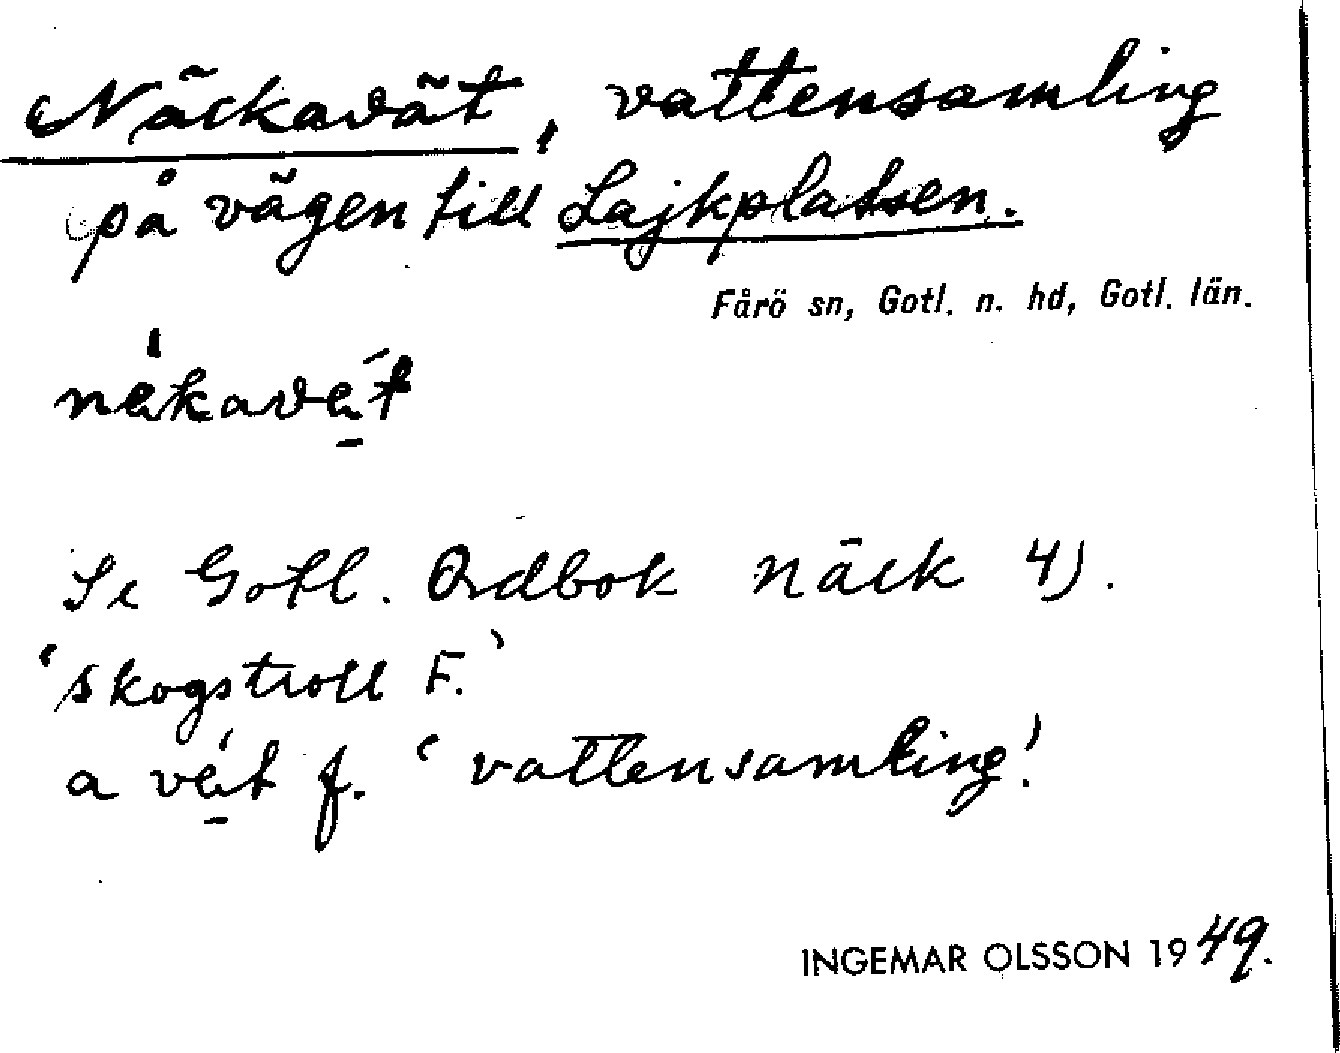 Näckavät, vattensamling
på vägen till Lajkplatsen.
Fårö sn, Gotl. n. hd, Gotl. län.
Se Gotl. Ordbok näck 4).
'skogstroll F.'
a vät f. 'vattensamling'.
INGEMAR OLSSON 1949.